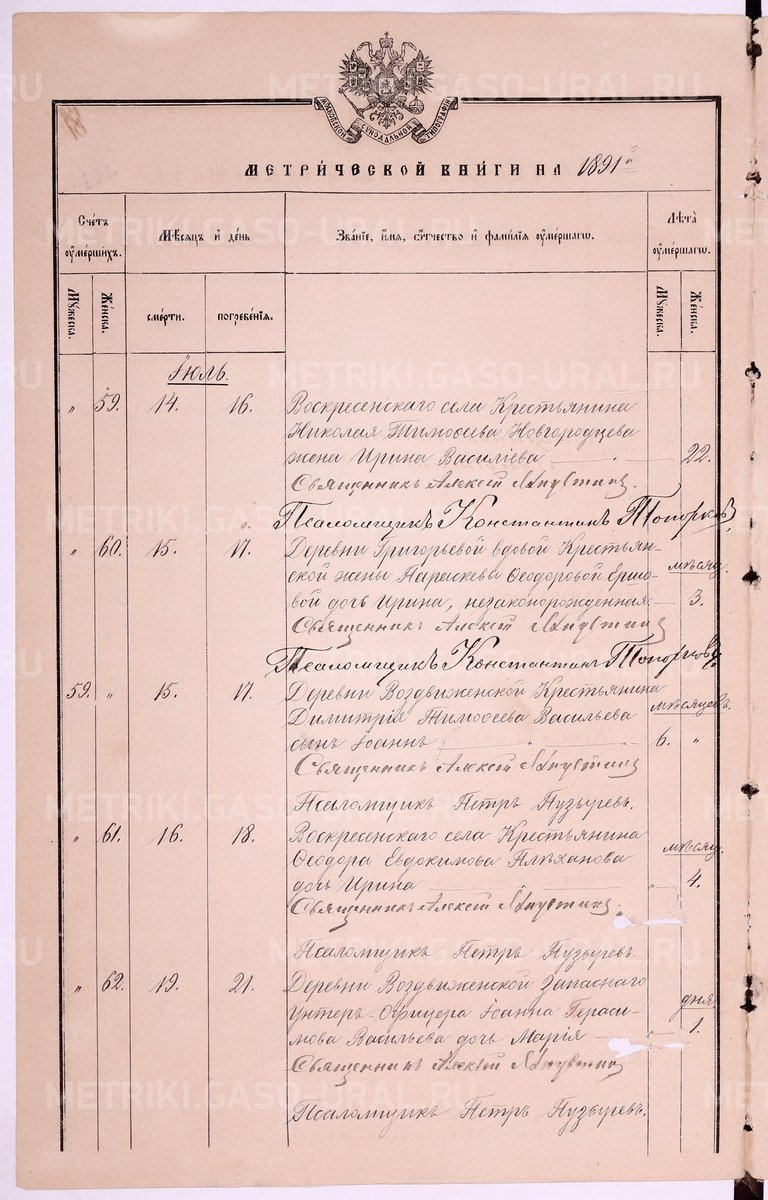 МОСКОВСКОЙ СѴНОДАЛЬНОЙ ТИПОГРАФІИ
МЕТРИ́ЧЕСКОЙ КНИ́ГИ НА 1891 г.
Сче́тъ ᲂумершихъ.
Мѣсяцъ и де́нь
Зва́нїе, и́мѧ, ѻ҆́тчество и фами́лїѧ ᲂуме́ршагѡ.
Лѣта̀ ᲂуме́ршагѡ.
Мꙋжеска.
Же́нска.
сме́рти.
погребе́нїѧ.
Мꙋжеска.
Же́нска.
Іюль.
" 59. 14. 16. Воскресенскаго села Крестьянина
Николая Тимоѳеева Новгородцева
жена Ирина Василіева 22.
Священникъ Алексѣй
Псаломщикъ Константинъ Топорковъ
" 60. 15. 17. Деревни Григорьевой вдовой Крестьян-
ской жены Параскевы Ѳеодоровой Ершо- мѣсяц.
вой дочь Ирина, незаконорожденная 3.
Священникъ Алексѣй
Псаломщикъ Константинъ Топорковъ
59. " 15. 17. Деревни Воздвиженской Крестьянина
Димитрія Тимоѳеева Васильева мѣсяцевъ.
сынъ Іоаннъ 6. "
Священникъ Алексѣй
Псаломщикъ Петръ Пузыревъ.
" 61. 16. 18. Воскресенскаго села Крестьянина
Ѳеодора Евдокимова Алѣханова мѣсяц.
дочь Ирина " 4.
Священникъ Алексѣй
Псаломщикъ Петръ Пузыревъ.
" 62. 19. 21. Деревни Воздвиженской Запаснаго
Унтеръ-Офицера Іоанна Гераси- дня
мова Васильева дочь Марія " 1.
Священникъ Алексѣй
Псаломщикъ Петръ Пузыревъ.
METRIKI.GASO-URAL.RU